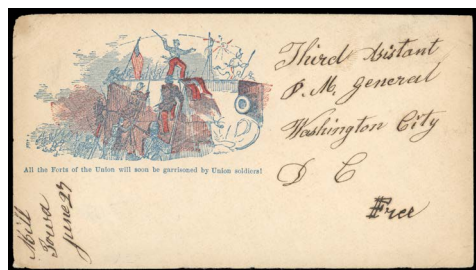 All the Forts of the Union will soon be garrisoned by Union soldiers!
Third Asistant
P. M. General
Washington City
D C
Free
Mill
Iowa
June 27